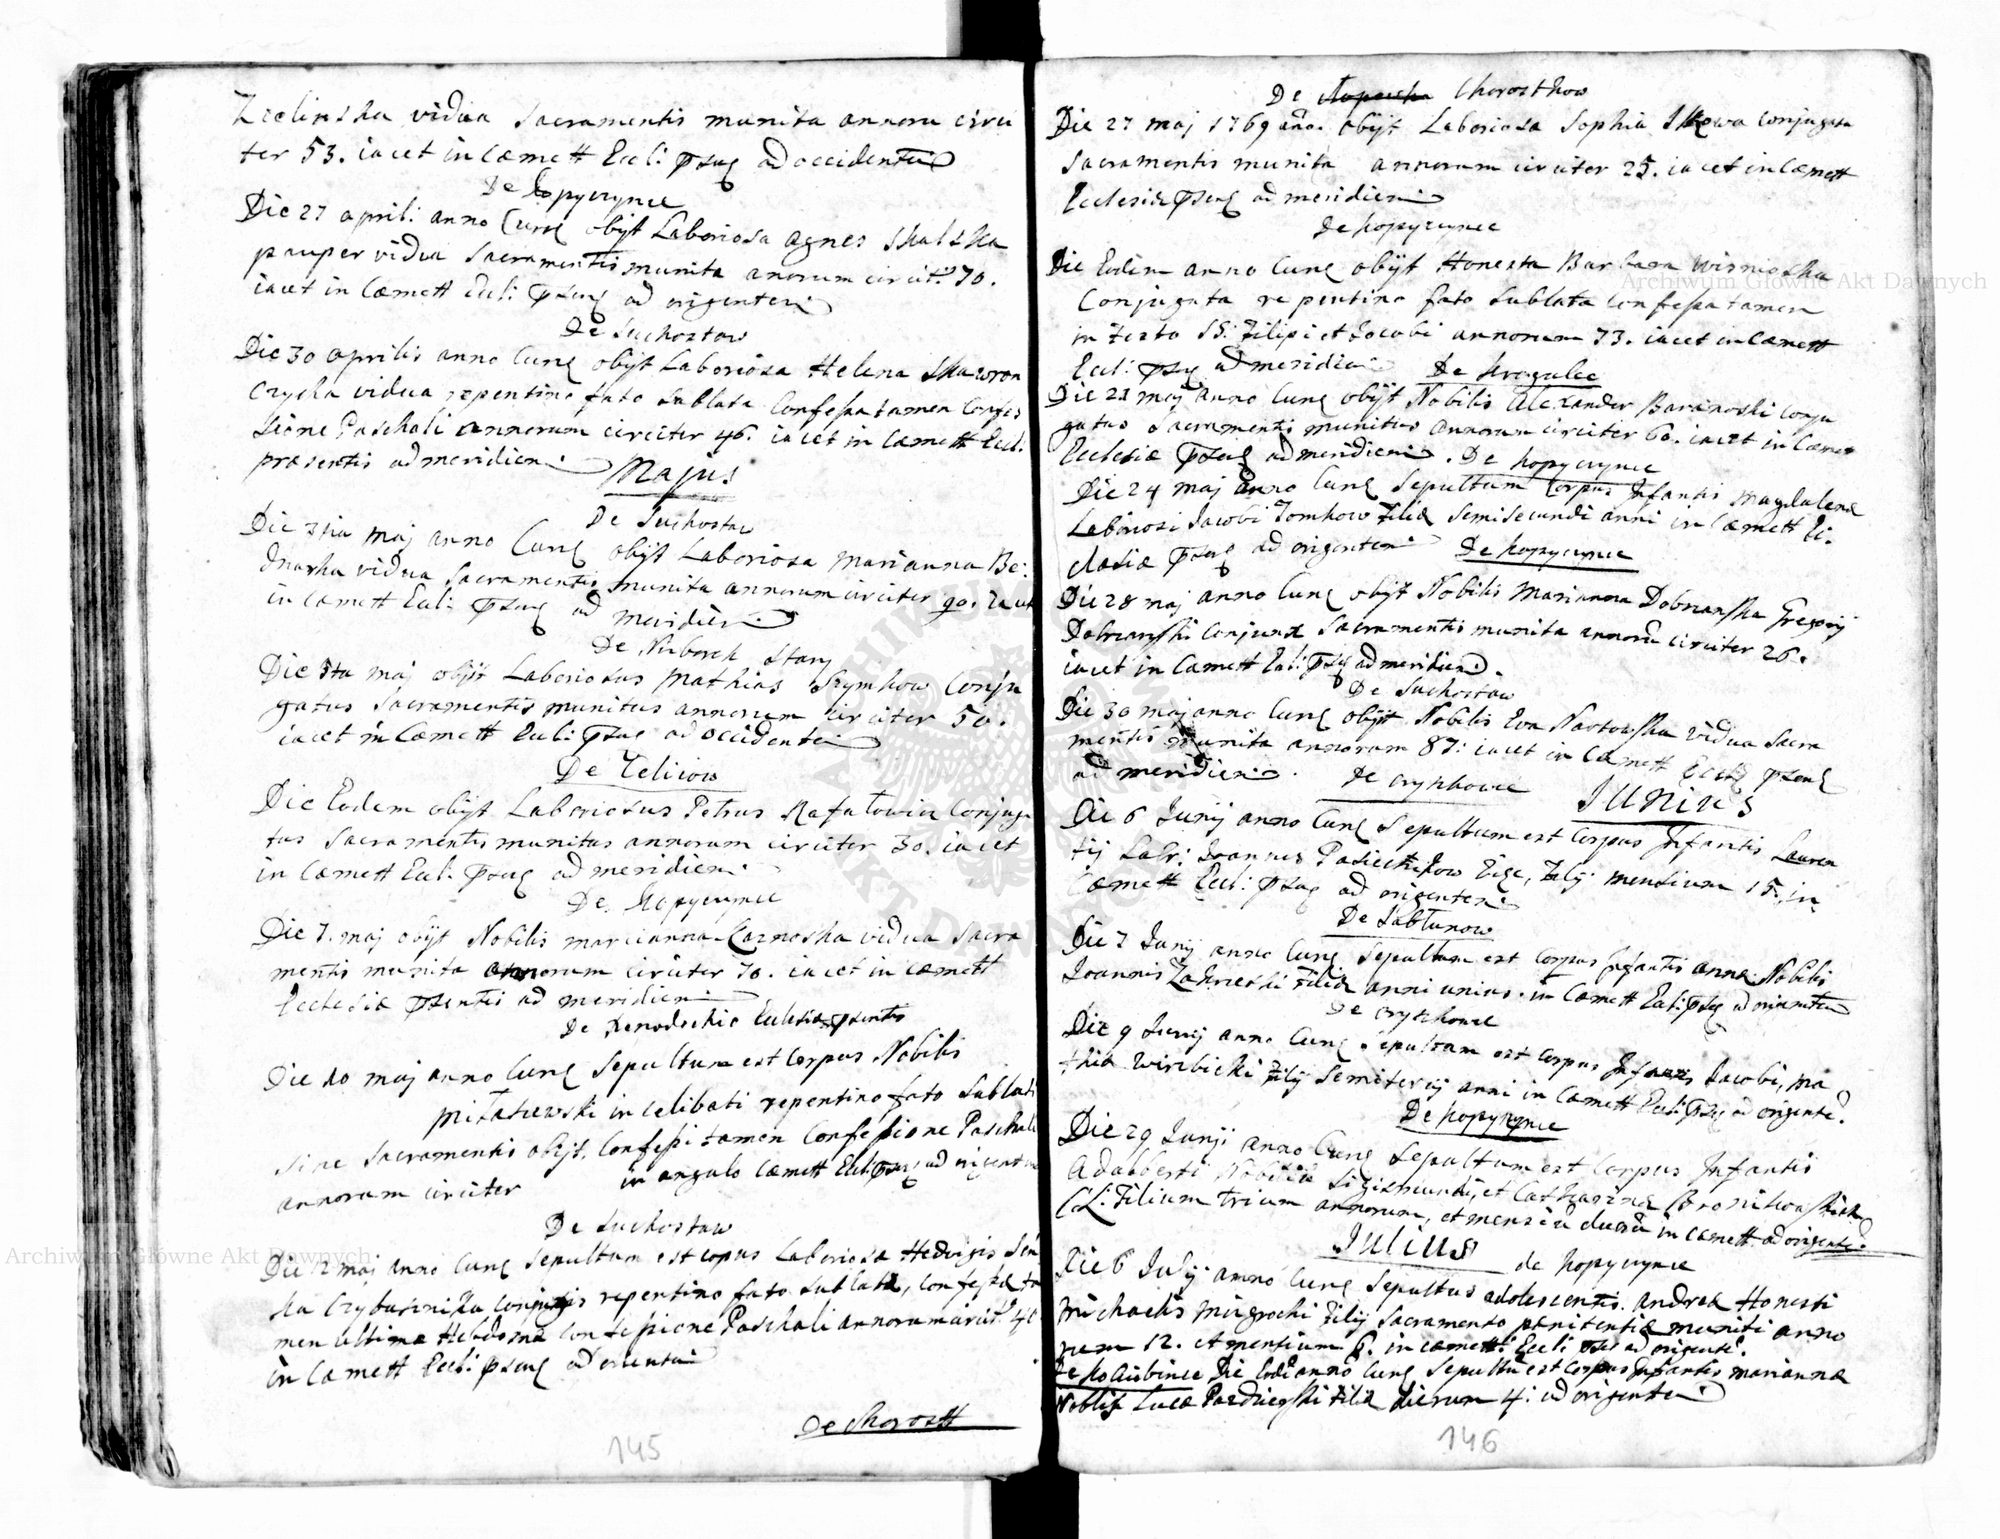 Zielinska vidua Sacramentis munita annoru circi
ter 53. iacet in Cæmett Eccl: ad occidente
De Kopyczynce
Die 27 april: anno Curr obijt Laboriosa Agnes Skalska
pauper vidua Sacramentis munita anorum circit. 70.
iacet in Cæmett Eccl: ad origentem
De Suchostaw
Die 30 aprilis anno Curr obijt Laboriosa Helena Skawron
czycka vidua repentino fato sublata Confessa tamen Confes
sione Paschali annorum circiter 46. iacet in Cæmett Eccl:
præsentis ad meridiem
Majus
De Suchostaw
Die 3tia maj anno Curr obijt Laboriosa Marianna Be:
dnarka vidua Sacramentis munita annorum circiter 90. Iacet
in Cæmett Eccl: ad meridiem
De Niborck Stary
Die 5ta maj obijt Laboriosus Mathias Szymkow Conju
gatus Sacramentis munitus annorum circiter 50.
iacet in Cæmett Eccl: ad occidente
De Celiiow
Die Eodem obijt Laboriosus Petrus Rafałowicz Conjuga
tus Sacramentis munitus annorum circiter 30. iacet
in Cæmett Eccl: ad meridiem
De Kopyczynce
Die 7. maj obijt Nobilis marcianna vidua Sacra
mentis munita annorum circiter 70. iacet in cæmett
Ecclesiæ ad meridiem
De Ecclesiæ
Die 10 maj anno Curr Sepultum est Corpus Nobilis
in celibati repentino fato Sublati
sine Sacramentis obijt, Confessi tamen Confessione Paschali
annorum circiter in angulo Cæmett Eccl: ad origentem
De Suchostaw
Die 12 maj anno Curr Sepultum est copus Laboriosa Hedvigis
repentino fato sublatæ, confessæ ta
men ultima Hebdoma Confessione Paschali
in Cæmett Eccl: ad orientem
De Chorostt
145
De Chorostkow
Die 27 maj 1769 ano. obijt Laboriosa Sophia conjugata
Sacramentis munita annorum circiter 25. iacet in Cæmett
Ecclesiæ ad meridiem
De Kopyczynce
Die Eodem anno Curr obijt Honesta Barbara Wisnioska
Conjugata repentino fato sublata Confessa tamen
in Festo SS: Filipi et Jacobi annorum 73. iacet in Cæmett
Eccl: ad meridiem De Krogulec
Die 21 maj Anno Curr obijt Nobilis Alexander Baranoski conju
gatus Sacramentis munitus annorum circiter 60. iacet in Cæmet
Ecclesiæ ad meridiem. De Kopyczynce
Die 24 maj anno Curr Sepultum Corpus Infantis Magdalenæ
Laboriosi Jacobi Tomkow Filiæ semisecundi anni in Cæmett Ec:
clesiæ ad origentem De Kopyczynce
Die 28 maj anno Curr obijt Nobilis Marianna Dobrzanska Gregorij
Dobrzanski Conjunx Sacramentis munita annoru circiter 26.
iacet in Cæmett Eccl: ad meridiem.
De Suchostaw
Die 30 maj anno Curr obijt Nobilis Eva vidua Sacra
mentis munita annorum 87: iacet in Cæmett
ad meridiem. De Oryszkowce JUNIUS
Die 6 Junij anno Curr Sepultum est Corpus Infantis Lauren
tij Labr: Joannis Filij mensium 15. in
Cæmett Eccl: ad origentem
De Jabłunow
Die 7 Junij anno Curr Sepultum est Corpus Infantis Annæ Nobilis
Joannis Zakrzeski Filiæ anni unius. in Cæmett Eccl: ad orientem
De Oryszkowce
Die 9 Junij anno Curr Sepultum est Corpus Infantis Jacobi, Ma
thiæ Wirzbicki Filij Semitertij anni in Cæmett Eccl: ad origente.
De Kopyczynce
Die 29 Junij anno Curr Sepultum est Corpus Infantis
Adalberti Nobiliu Sigismundi, et Catharinæ
CL: Filium trium annorum, et mensiu duoru in Cæmett. ad origente.
Julius de Kopyczynce
Die 6 Julij anno Curr Sepultus adolescentis. Andreæ Honesti
Michaelis Filij Sacramento pænitentiæ muniti anno
rum 12. et mensium 6. in cæmett: Eccli ad origente.
De Kociubince Die Eode anno Curr Sepultu est Corpus Infantis Mariannæ
Nobilis Lucæ Filiæ dierum 4: ad origente
146
Archiwum Główne Akt Dawnych
Archiwum Główne Akt Dawnych
ARCHIWUM GŁÓWNE AKT DAWNYCH